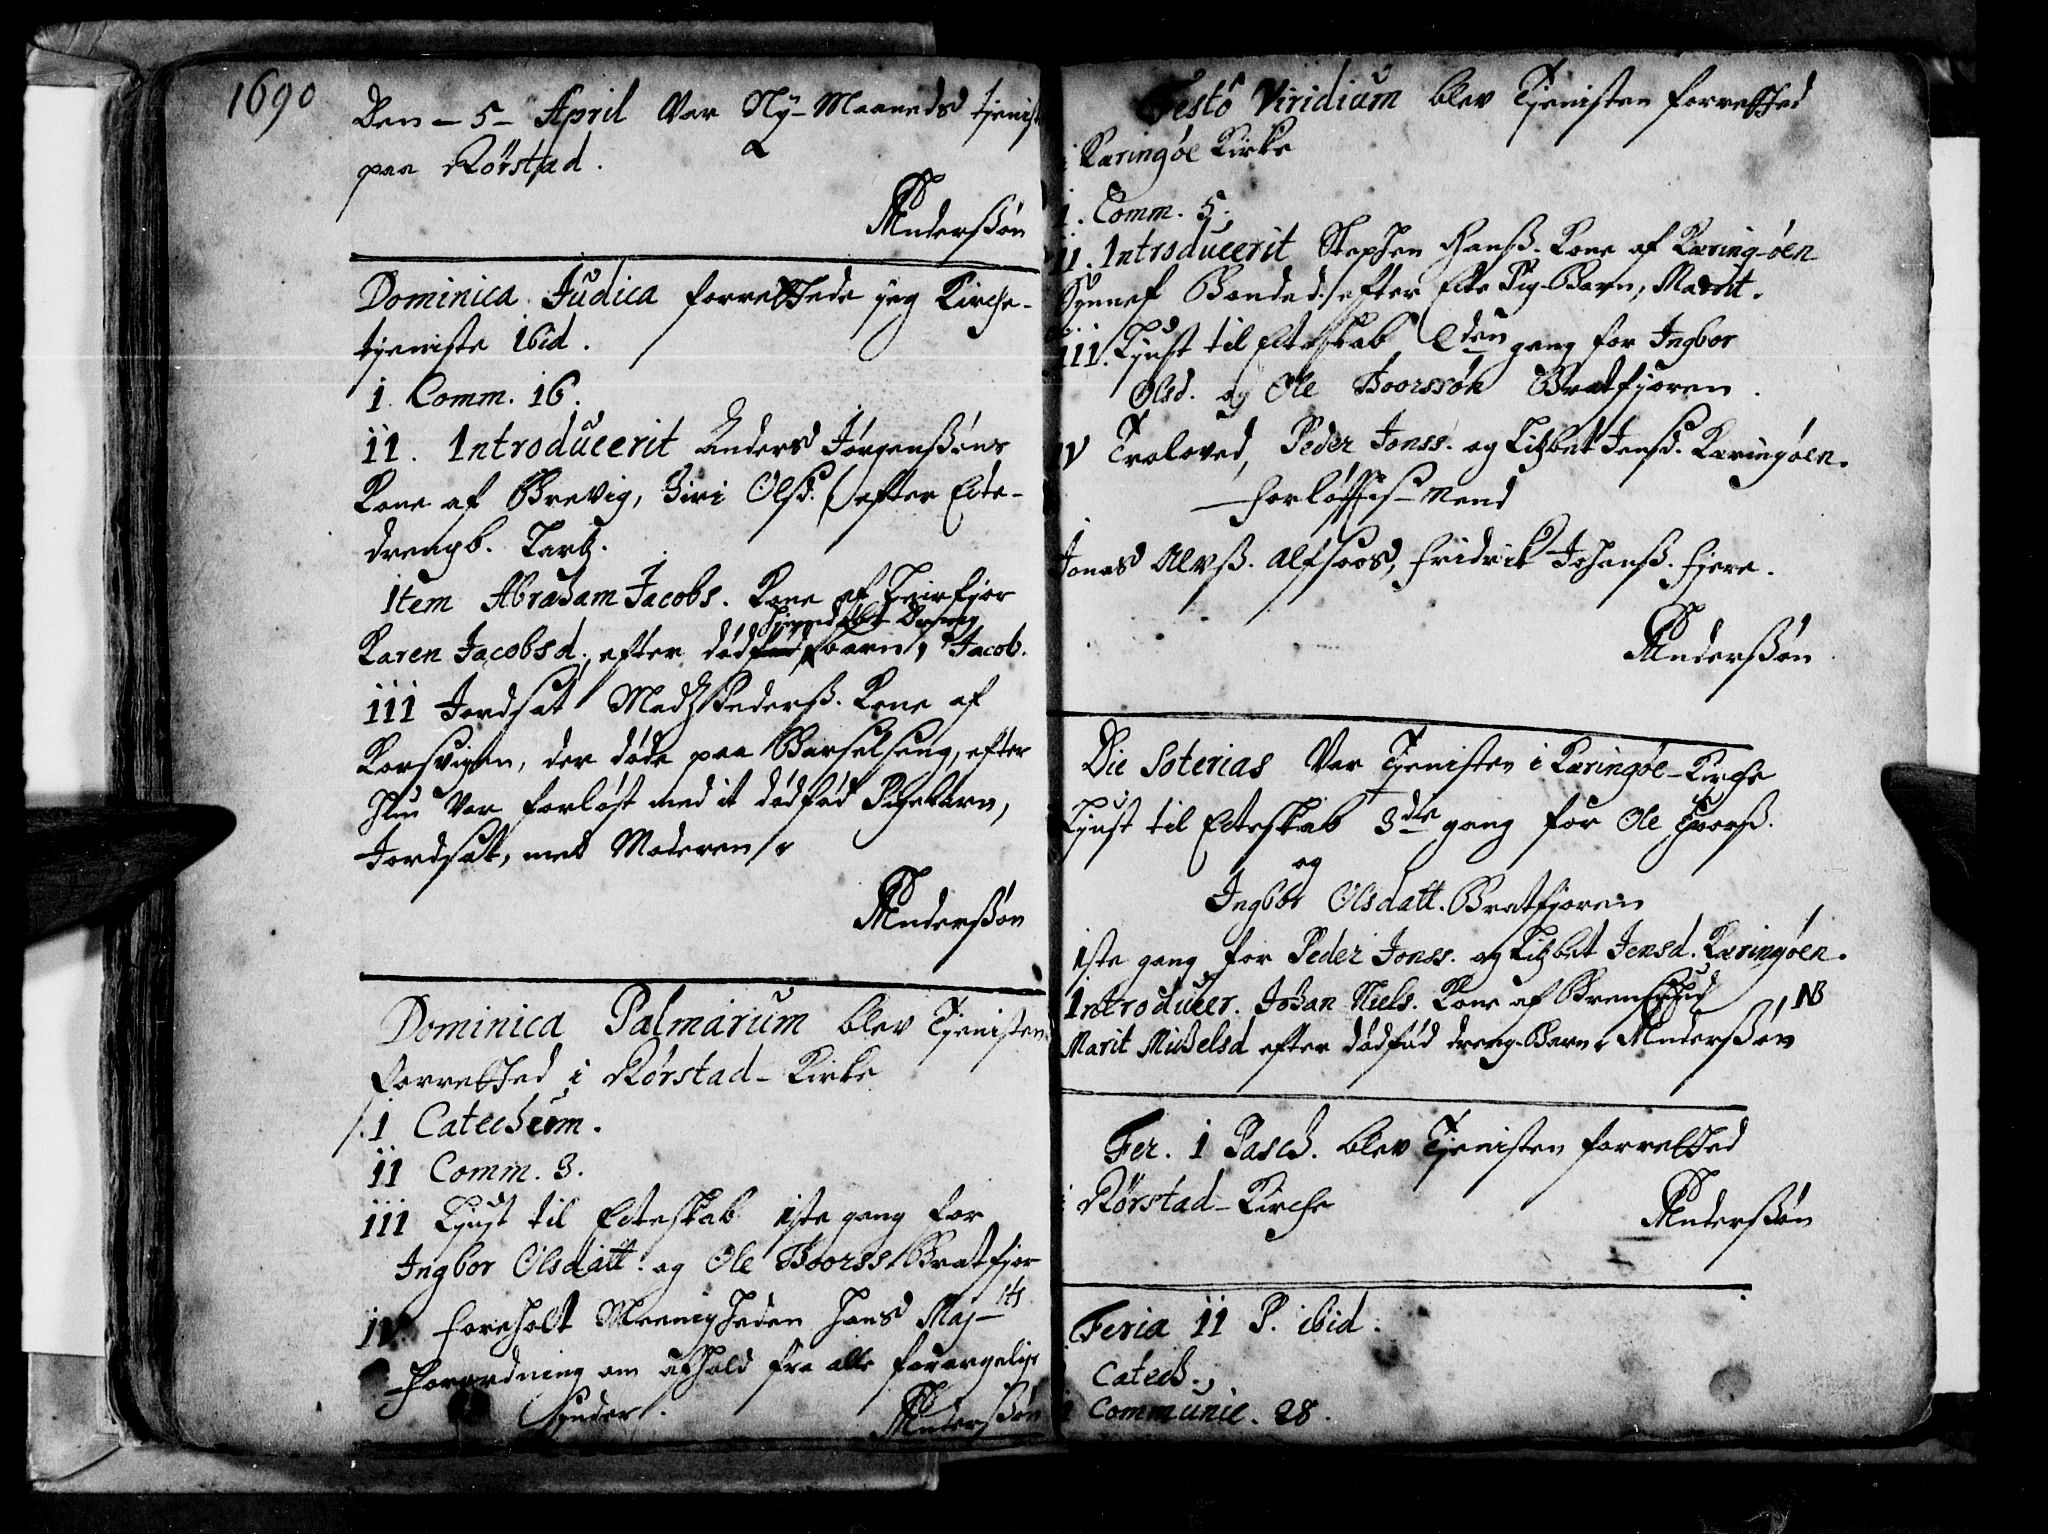 1690
Den - 5 - April Var Ny-Maaneds tjenist
paa Rørstad.
Anderssøn
Dominica Judica forrettede jeg Kirche-
tjeniste ibid.
i. Comm. 16.
ii. Introducerit Anders Jørgenssøns
Kone af Brevig, Siri Olsd. efter Ecte-
drengb. Lars.
Item Abraham Jacobs. Kone af Leirfjor
Karen Jacobsd., efter barn, Jacob.
iii Jordsat Madz Pederss. Kone af
Korsvigen, der døde paa Barselseng, efter
Hun Var forløst med it dødfød Pigebarn,
Jordsat, med Moderen
Anderssøn
Dominica Palmarum blev Tjenisten
forretted i Rørstad-Kirke
i Catechism.
ii Comm. 3.
iii Liust til Ecteskab 1ste gang for
Ingbor Olsdatt. og Ole Thoorss. Bratfjor
iv foreholt Meenigheden Hans Maj-ts
Forordning om afhold fra alle forargelige
Synder.
Anderssøn
Festo Viridium blev Tjenisten forretted
i Karingøe Kirke
i. Comm. 5.
ii. Introducerit Stephen Hanss. Kone af Karing-øen
Synnef Bonded. efter Ecte Pig-Barn, Marrit.
iii. Liust til Ecteskab 2den gang for Ingbor
Olsd. og Ole Thoorssøn Bratfjoren.
iv Troloved, Peder Jonss. og Litzbet Jensd. Karingøen.
Forløftis-Mend
Jonas Alvss. Alfsoos, Fridrik Johanss. Fjere.
Anderssøn
Die Soterias Var Tjenisten i Karingøe-Kirche
Liust til Ecteskab 3die gang for Ole Thorss.
og
Ingbor Olsdatt. Bratfjoren
1ste gang for Peder Jonss. og Litzbet Jensd. Karingøen.
Introducer. Johan Niels. Kone af NB
Marit Mickelsd efter dødfød dreng-Barn. Anderssøn
Fer. i Pasch. blev Tjenisten forretted
i Rørstad-Kirche
Anderssøn
Feria ii P. ibid.
i Catech.
ii Communic. 28.